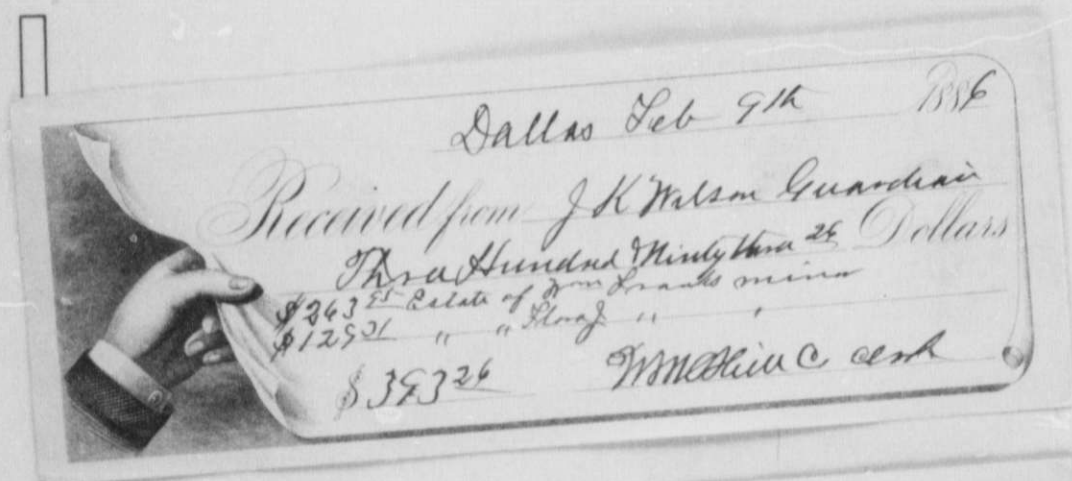 Dallas Feb 9th 1886
Received from J K Wilson Guardian
Three Hundred & Ninety three 26 Dollars
$263 95 Estate of minor
$129 31 " " Flora J " "
$393 26 Clerk